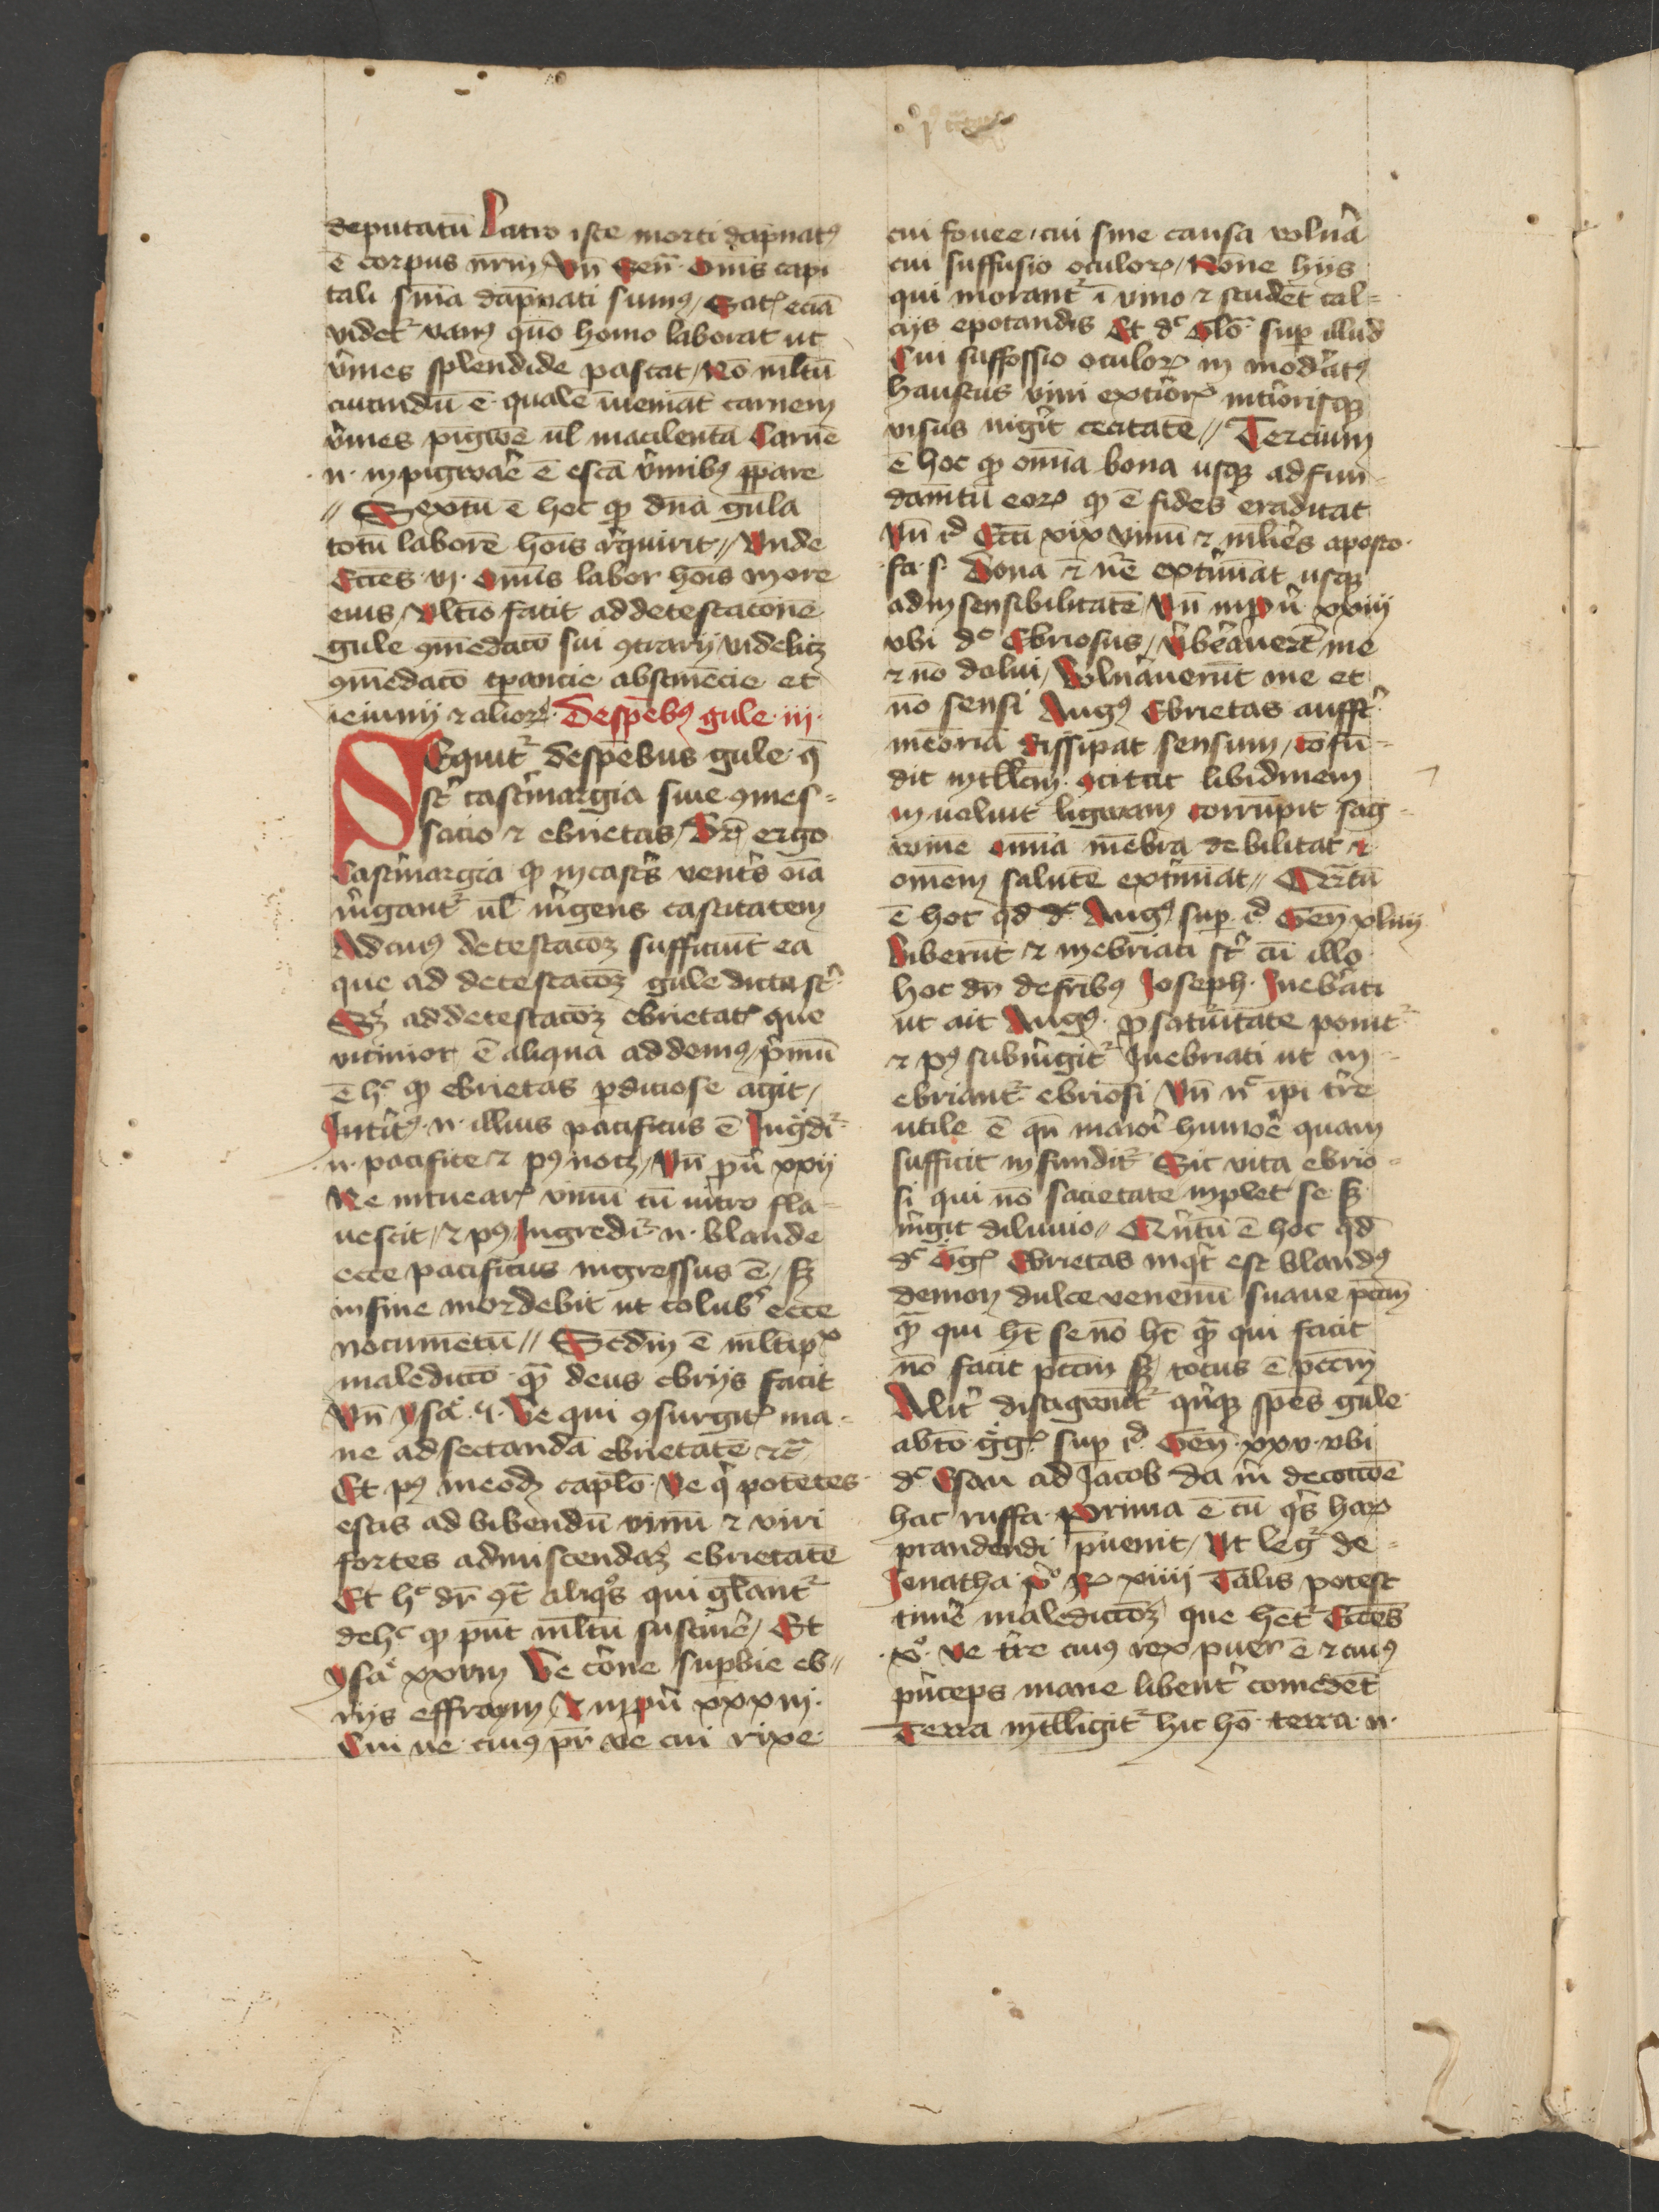 deputatū Latro iste morti dāpnatꝯ
ē corpus nr̄m / Vn̄ Sen̄ · Om̄s capi
tali sn̄ia dāpnati sumꝯ / Satꝭ eciā
videtʳ vanꝯ quō homo laborat ut
v̓mes splendide pascat / Nō ml̄tū
curandū ē qualē īueniāt carnem
v̓mes pigwē ul̄ macilentā Carnē
· n · inpigwaē ē escā v̓mibꝯ p̄pare
// Sextū ē hoc qꝫ dn̄a gula
totū laborē hoīs r̓quirit // Vnde
Eccēs · vj · Om̄īs labor hoīs in ore
eius / Vltīo facit ad detestacōnē
gule ꝯmēdacō sui ꝯtrarij videlicꝫ
ꝯmēdacō tꝑancie abstinēcie et
ieiunij ⁊ alioꝝ · De spēbꝯ gule · iij ·
SEquitʳ de spēbus gule · q̄
st̄ castrimargia siue ꝯmes=
sacio ⁊ ebrietas / Dr̄ ergo
Castrimargia qꝫ in castr̓s ventr̓s oīa
m̓gantʳ ul̄ m̓gens castitatem
Ad cuiꝯ detestacōꝫ sufficiūt ea
que ad detestacōꝫ gule dicta st̄
Sꝫ ad detestacōꝫ ebrietatꝭ que
vicinior ē aliqua addemꝯ / p̓mū
ē hͨ qꝫ ebrietas ꝑdiciose agit /
Intr̓tꝯ · n · illius pacificus ē Ingdiʳ
· n · pacifice ⁊ pꝯ nocꝫ / Vn̄ pū xxij
Ne intuearꝭ vinū cū vitro fla=
uescit / ⁊ pꝯ Ingrediʳ · n · blande
ecce pacificus ingressus ē / sꝫ
in fine mordebit ut colub̓ ecce
nocumētū // Scdm ē ml̄tipˣ
maledictō qā deus ebrijs facit
Vn̄ ysaͤ · ꝯ · Ve qui ꝯsurgitꝭ ma=
ne ad sectandā ebrietatē ⁊c̄
Et pꝯ in eodꝫ caplō · Ve qͥ potētes
estis ad bibendū vinū ⁊ viri
fortes ad miscendaꝫ ebrietatē
Et hͨ dr̄ ꝯt̄ aliqͦs qui gl̄antʳ
de hͨ qꝫ pn̄t ml̄tū sustin̓e / Et
ysaͤ xxviij Ve corōne suꝑbie eb//
rijs effraym / Et in pū xxxiij ·
Cui ve · cuiꝯ pr̄i ve cui rixe
cui fouee / cui sine causa voln̓a
cui suffusio oculoꝝ / Nōne hijs
qui morantʳ ī vino ⁊ studēt cal=
cijs epotandis Et dͨ Glō · suꝑ illud
Cui suffossio oculoꝝ in mod̓atꝯ
haustus vini ext̓ioꝝ int̓iorisqꝫ
visus nigrit cecitatē // Tercium
ē hoc qꝫ om̄ia bona usqꝫ ad fun=
damtū eoꝝ qꝫ ē fides eradicat
Vn̄ rͩ Ecci xix Vinū ⁊ ml̄ieres aposta·
fa · s · Bona ⁊ n̄e ext̓mīat usqꝫ
ad insensibilitatē Vn̄ in pū xxiij
vbi dͨ Ebriosus / V̓b̓auert̄ me
⁊ nō dolui / Voln̓auerūt me et
nō sensi Augꝯ Ebrietas auffertʳ
mēoriā dissipat sensum / cōfū=
dit intllcm · ꝯcitat libidinem
in uoluit ligwam corrūpit sāg=
winē om̄ia mēbra debilitat ⁊
om̄em salutē ext̓mīat // Qrtū
ē hoc qd dͨ Augꝯ suꝑ rͩ Gen̄ xliiij
Biberūt ⁊ inebriati st̄ cū illo
hoc dn̄ de frībꝯ Joseph · Inebr̓ati
ut ait Augꝯ · p saturitate ponitʳ
⁊ pꝯ subiungitʳ Inebriati ut in=
ebriantʳ ebriosi Vn̄ nͨ ip̄i tr̓re
utile ē qn̄ maiori humor̓e quam
sufficit infunditʳ Sic vita ebrio=
si qui nō sacietate inplet se sꝫ
m̓git diluuio // Qn̓tū ē hoc qd
dͨ Grͤgꝭ Ebrietas inqͥt est blandꝯ
demon dulce venenū suaue pctm̄
qā qui ht̄ se nō ht̄ qā qui facit
nō facit pctm̄ sꝫ totus ē pctm̄
Alit̓ distigwūtʳ qn̓qꝫ spēs gule
ab bt̄o ggꝭ suꝑ rͩ Gen̄ xxv · vbi
dͨ Esau ad Jacob da m̓ de coccōē
hac ruffa prima ē cū qͥs horā
prandendi p̄uenit / Vt legʳ de=
Jonatha pͦ Rͤ xiiij Talis potest
timer̓e maledictōꝫ que hētʳ Eccēs
· xͦ · ve tr̓re cuiꝯ rex puer ē ⁊ cuiꝯ
pn̓ceps mane libent̓ comedēt
Terra intlligitʳ hic hō · terra · n ·